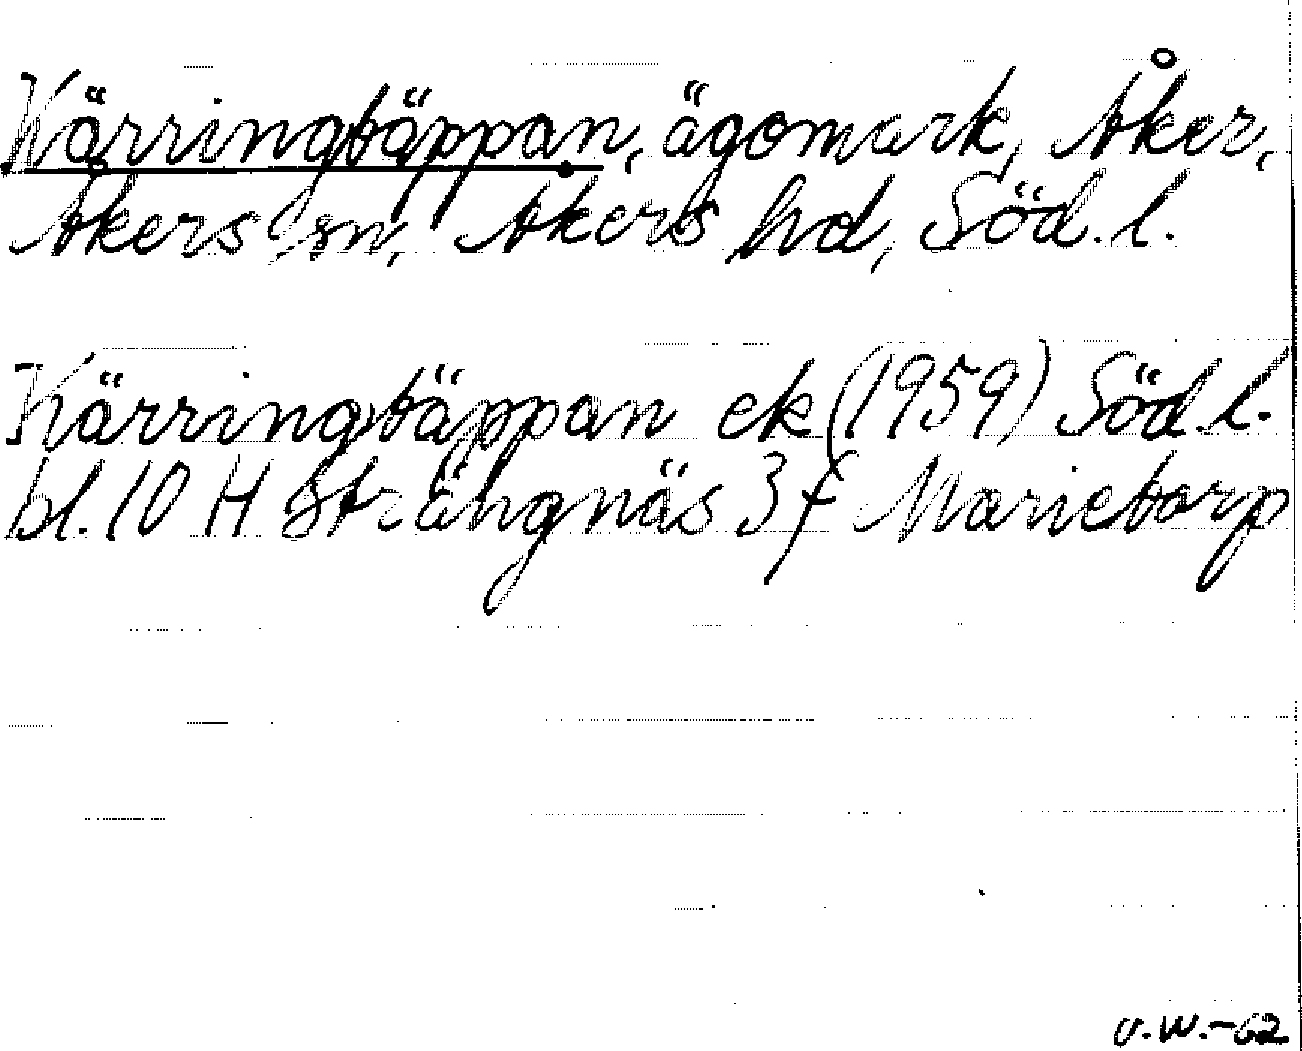 Kärringtäppan, ägomark, Åker,
Åkers sn, Åkers hd, Söd. l.
Kärringtäppan ek (1959) Söd. l.
bl. 10 H Strängnäs 3 f Marietorp
v.W.-62